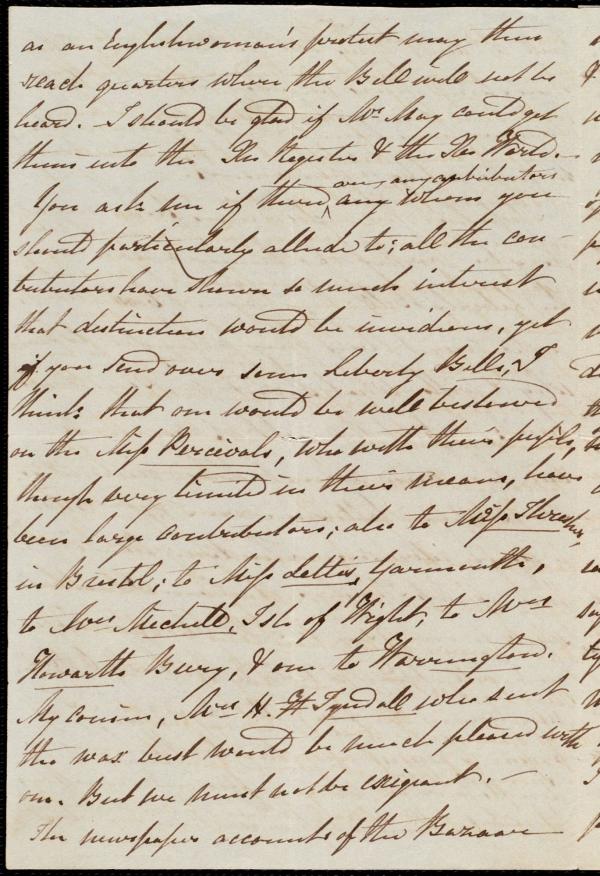 as an Englishwoman's protest may then
reach quarters where the Bell will not be
heard. - I should be glad if Mrs May could get
them into the Xn Register & the Xn World. -
are any contributors
You ask me if there any whom you
should particularly allude to; all the con-
tributors have shown so much interest
that distinction would be invidious, yet
if you send over some Liberty Bells, I
think that one would be well bestowed
on the Miss Percivals, who with their pupils,
though very limited in their means, have
been large contributors; also to Miss
in Bristol; to Miss Yarmouth,
to Mrs Michell, Isle of Wight, to Mrs
Howarth Bury, & one to Warrington.
My cousin, Mrs H. Tyndall who sent
the wax bust would be much pleased with
one. But we must not be exigeant. -
The newspaper accounts of the Bazaar